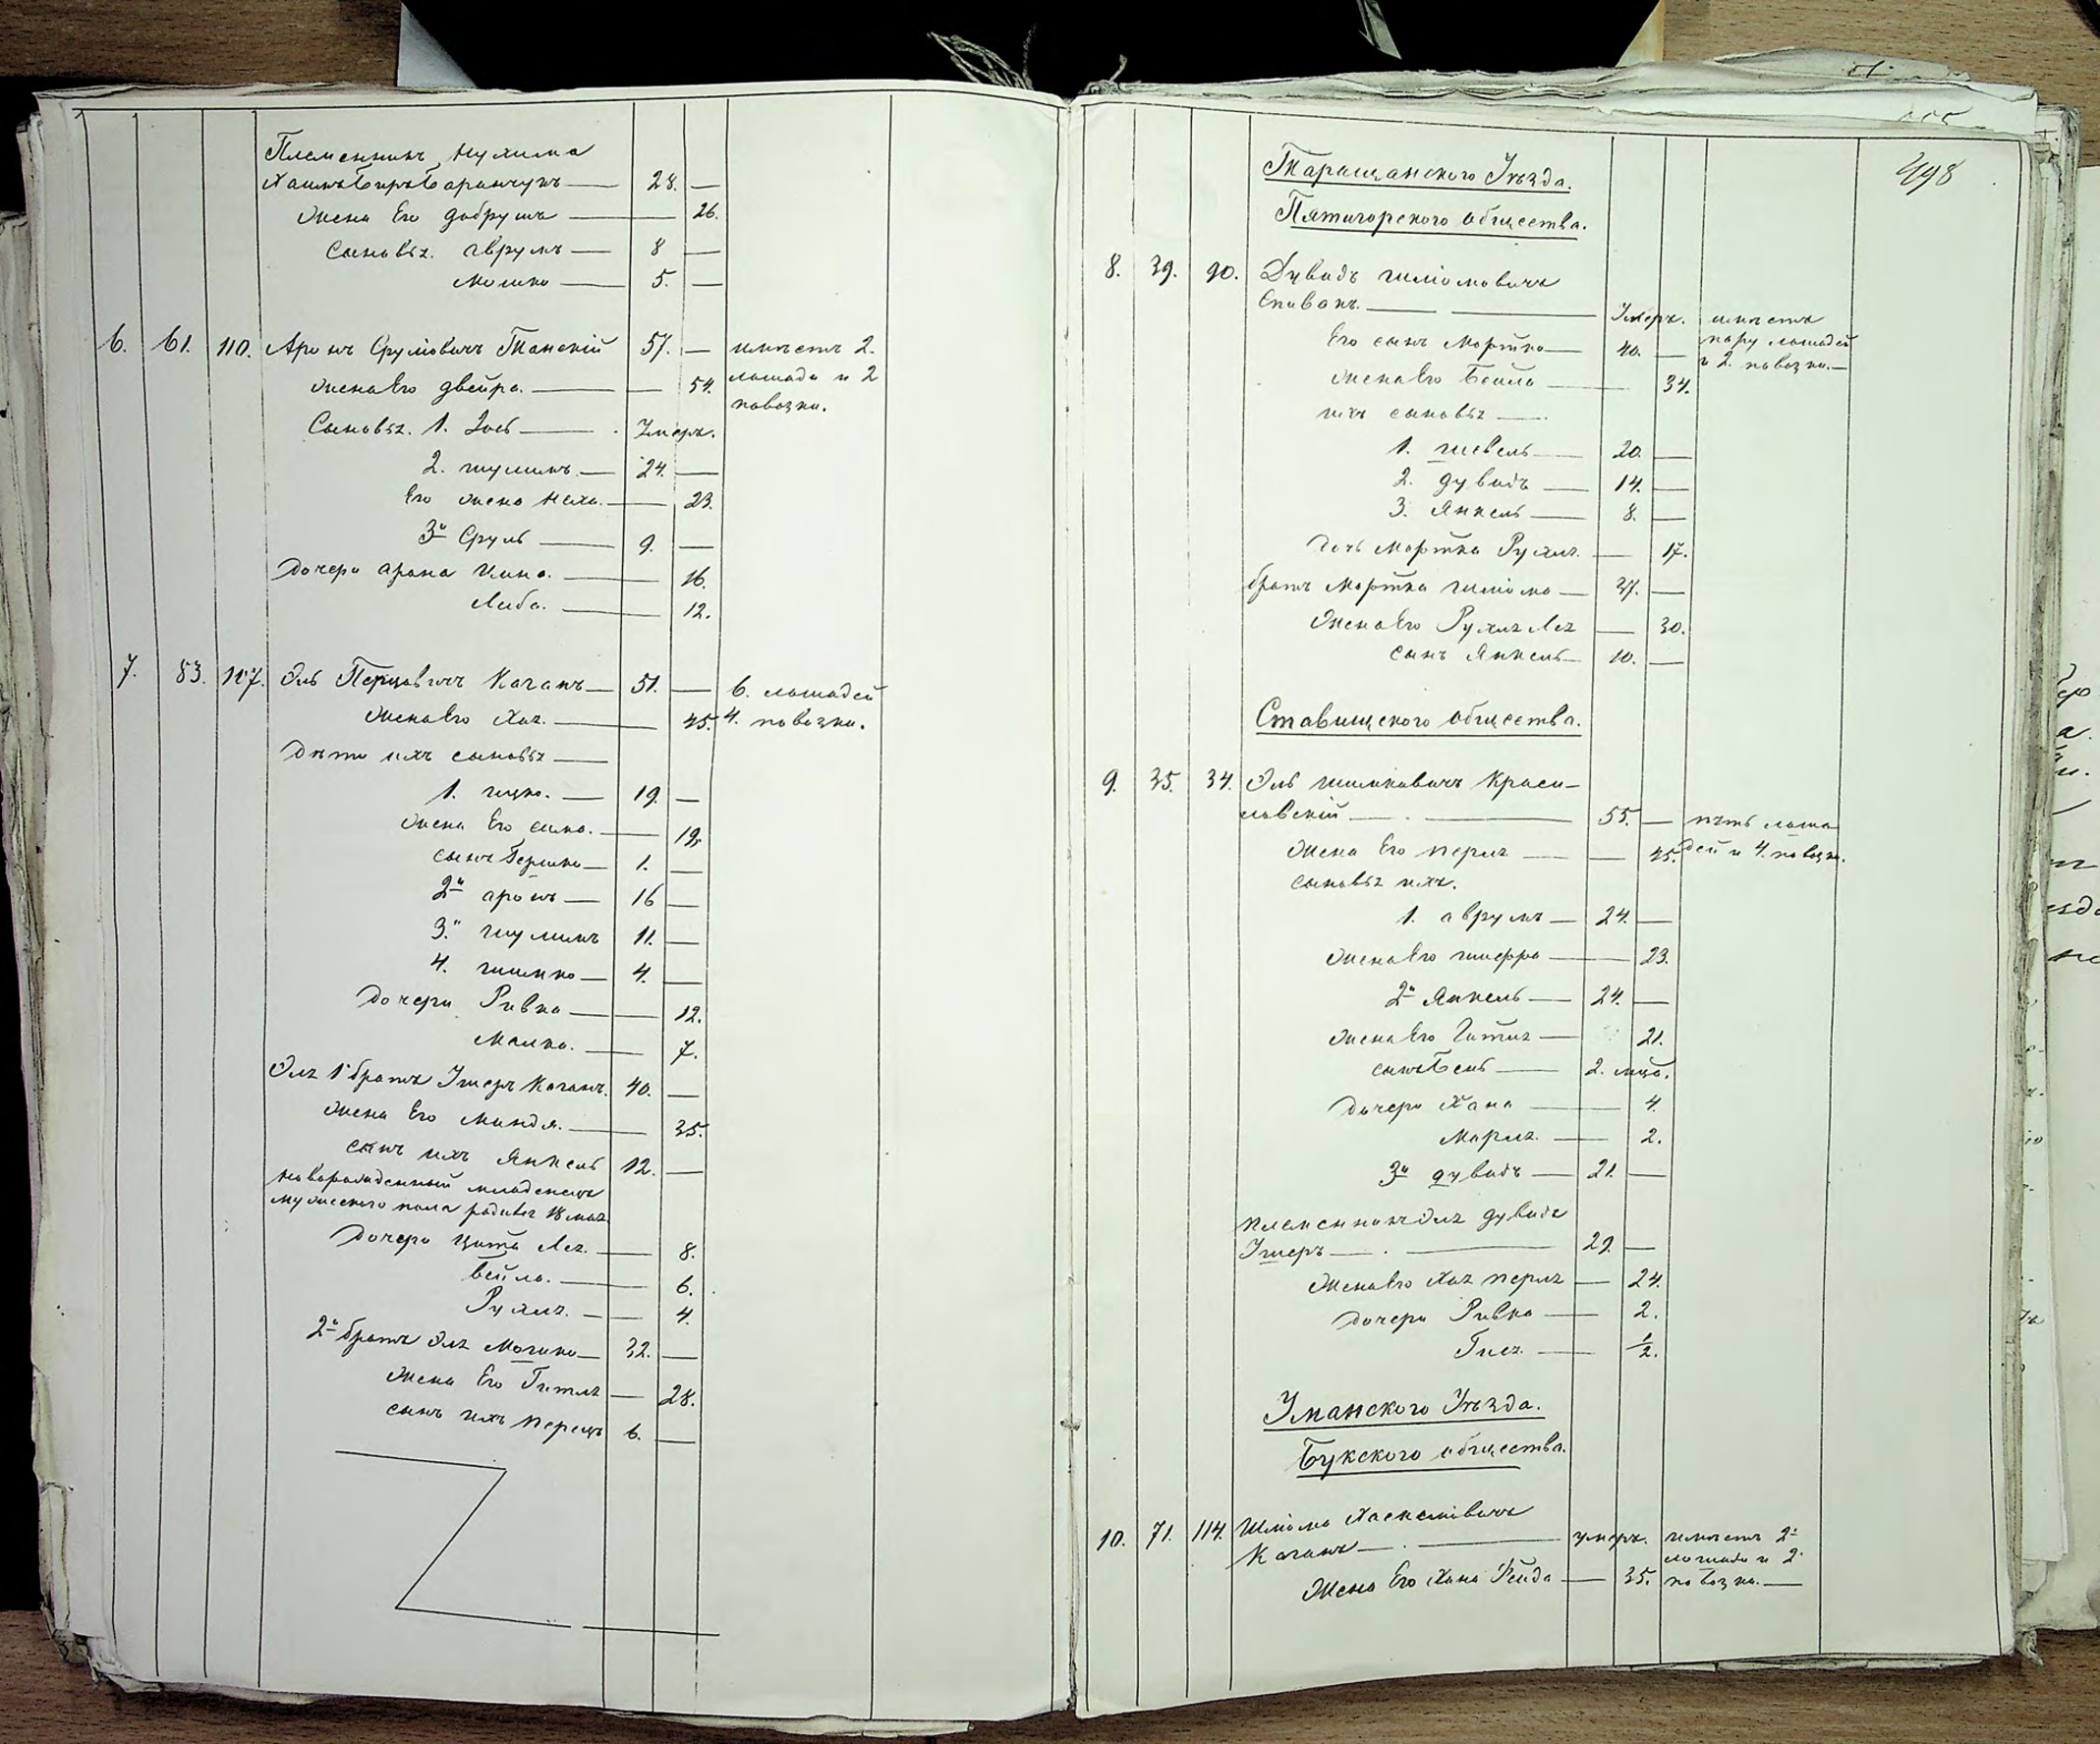 Племенникъ Нухима
Хаимъ Беръ Баранчукъ — 28. —
Жена Его Добрушъ — 26.
Сыновьѣ. Аврумъ — 8 —
Мошко — 5. —
6. 61. 110. Аронъ Сруліовичъ Танскій 57. — имѣетъ 2.
лошади и 2
повозки.
Жена Его Двейра. — 54.
Сыновьѣ. 1. Іось — Умеръ.
2. Шулимъ. — 24. —
Его жена Неха. — 23.
3й Сруль — 9. —
Дочери Арона Цина. — 16.
Либа. — 12.
7. 83. 117. Эль Перцовичъ Каганъ — 51. — 6. лошадей
4. повозки.
Жена Его Хая. — 45.
Дѣти ихъ сыновьѣ —
1. Ицко. — 19. —
Жена Его Сима. — 19.
сынъ Гершко — 1. —
2й Аронъ — 16 —
3й Шулимъ 11. —
4. Шимко — 4. —
Дочери Ривка — 12.
Малка. — 7.
Эля 1й братъ Ушеръ Каганъ. 40. —
Жена Его Миндля. — 35.
сынъ ихъ Янкель 12. —
новорожденный младенецъ
мужеского пола родився 18 мая.
Дочери Ципа Лея. — 8.
Бейла. — 6.
Рухля. — 4.
2й братъ Эля Мошко — 32. —
Жена Его Гитля — 28.
сынъ ихъ Перецъ 6. —
498
Таращанского Уѣзда.
Пятигорского общества.
8. 39. 90. Дувидъ Шліомовичъ
Спивакъ. — Умеръ. имѣетъ
пару лошадей
и 2. повозки. —
Его сынъ Мортко — 40. —
Жена Его Бейла — 34.
ихъ сыновьѣ —
1. Шевель — 20. —
2. Дувидъ — 14. —
3. Янкель — 8. —
Дочь Мортка Рухля. — 17.
братъ Мортка Шліома — 37. —
Жена Его Рухля Лея — 30.
сынъ Янкель — 10. —
Ставищского общества.
9. 35. 34. Эль Шимковичъ Краси-
ловскій — 55. — пять лоша
дей и 4. повозки.
Жена Его Перля — 45.
Сыновьѣ ихъ.
1. Аврумъ — 24. —
Жена Его Шифра — 23.
2й Янкель — 24. —
Жена Его Гитля — 21.
сынъ Бень — 2. мца.
Дочери Хана — 4.
Маря. — 2.
3й Дувидъ — 21. —
племенникъ Эля Дувидъ
Ушеръ — 29. —
Жена Его Хая Перля — 24.
Дочери Ривка — 2.
Гнея. — 1/2.
Уманского Уѣзда.
Букского общества.
10. 71. 114. Шліома Хаскеліовичъ
Каганъ — умеръ. имѣетъ 2
лошади и 2
повозки. —
Жена Его Хана Рейда — 35.